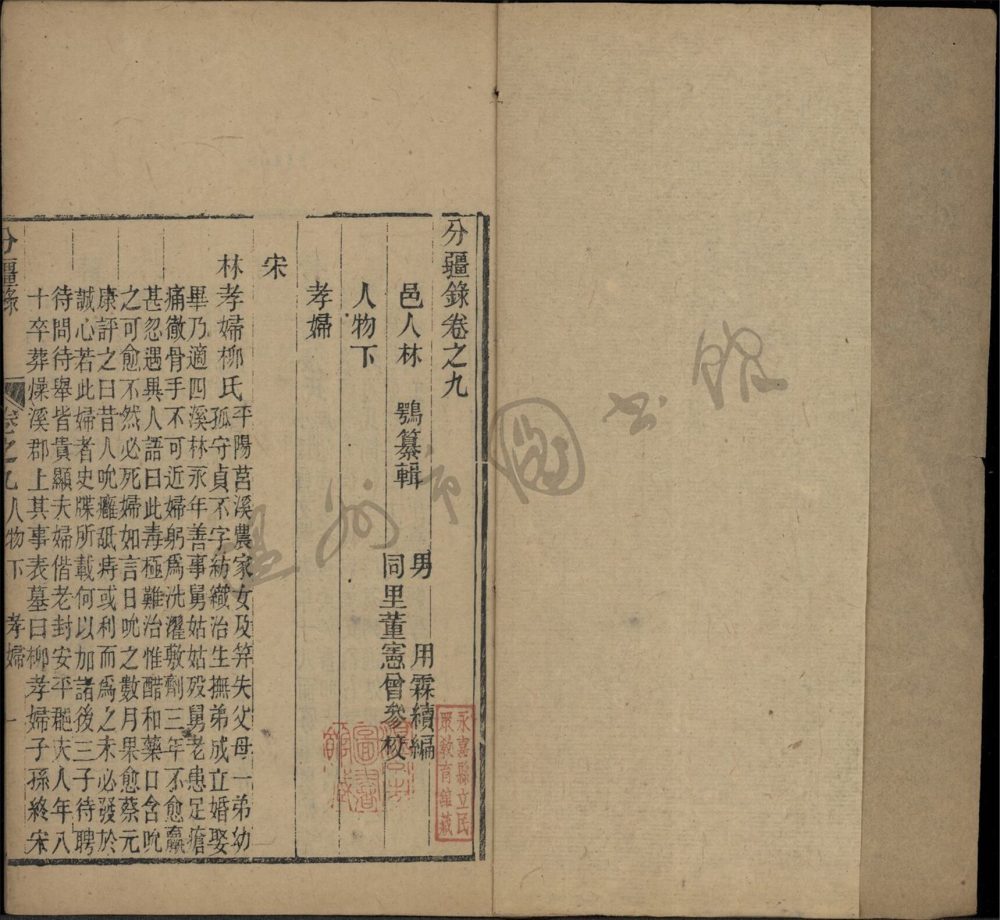 分疆錄卷之九
邑人林　鶚纂輯
男　用霖續編
同里董憲曾參校
人物下
孝婦
宋
林孝婦柳氏
平陽莒溪農家女及笄失父母一弟幼
孤守貞不字紡織治生撫弟成立婚娶
畢乃適四溪林永年善事舅姑姑歿舅老患足瘡
痛徹骨手不可近婦躬爲洗濯敷劑三年不愈羸
甚忽遇異人語曰此毒極難治惟醋和藥口含吮
之可愈不然必死婦如言日吮之數月果愈蔡元
康評之曰昔人吮癰舐痔或利而爲之未必發於
誠心若此婦者史牒所載何以加諸後三子待聘
待問待舉皆貴顯夫婦偕老封安平郡夫人年八
十卒葬燥溪郡上其事表墓曰柳孝婦子孫終宋
分疆錄　卷之九　人物下　孝婦　一
永嘉縣立民
眾教育館藏
溫州市圖書館